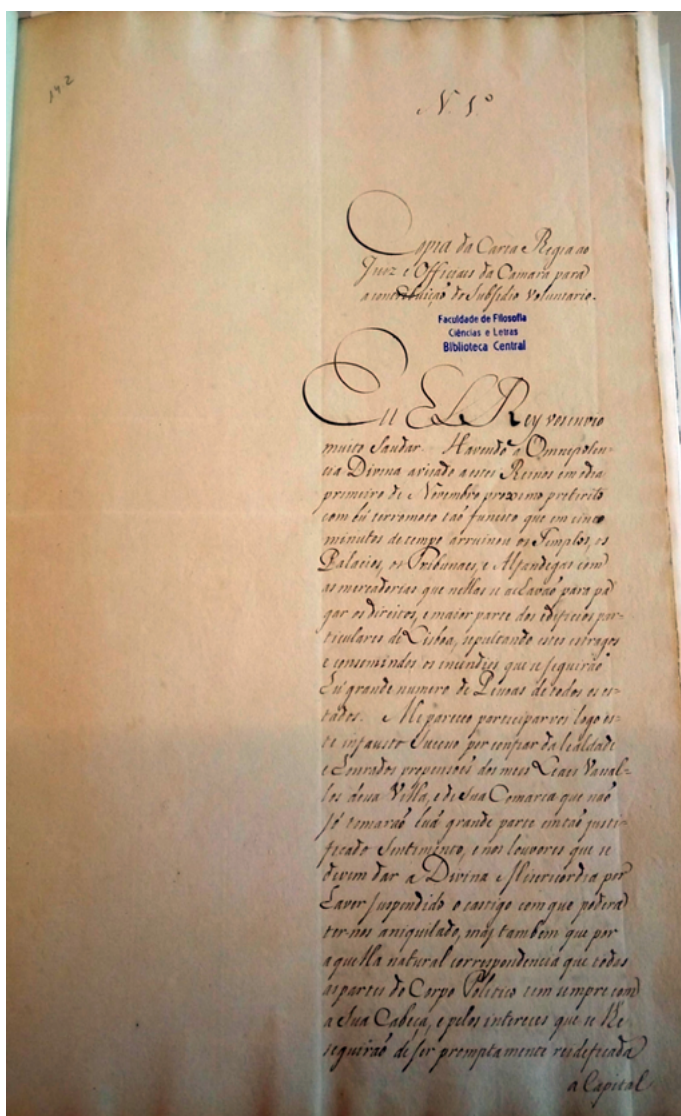 142
N. 1º
Copia da Carta Regia ao
Juiz e Officiaes da Camara para
a contribuição do Subsidio voluntario.
Faculdade de Filosofia
Ciências e Letras
Biblioteca Central
Eu El Rey vos envio
muito Saudar. Havendo a Omnipoten-
cia Divina avisado a estes Reinos em o dia
primeiro de Novembro proximo preterito
com hû terremoto taõ funesto que em cinco
minutos de tempo arruinou os Templos, os
Palacios, os Tribunaes, e Alfandegas com
as mercadorias que nellas se achavaõ para pa-
gar os direitos, e maior parte dos edificios par-
ticulares de Lisboa, sepultando estes estragos
e consumindos os incendios que se seguiraõ
hû grande numero de Pessoas de todos os es-
tados. Me pareceo participarvos logo es-
te infausto Sucesso por confiar da lealdade
e honrados propensoẽs dos meus Leaes Vassal-
los dessa Villa, e de sua Comarca que naõ
só tomaraõ huã grande parte em taõ justi-
ficado Sentimento, e nos louvores que se
devem dar a Divina Misericordia por
haver suspendido o castigo com que podera
ter-nos aniquilado, mas tambem que por
aquella natural correspondencia que todas
as partes do Corpo Politico tem sempre com
a Sua Cabeça, e pelos interesses que se Re
seguiraõ de ser promptamente reideficada
a Capital